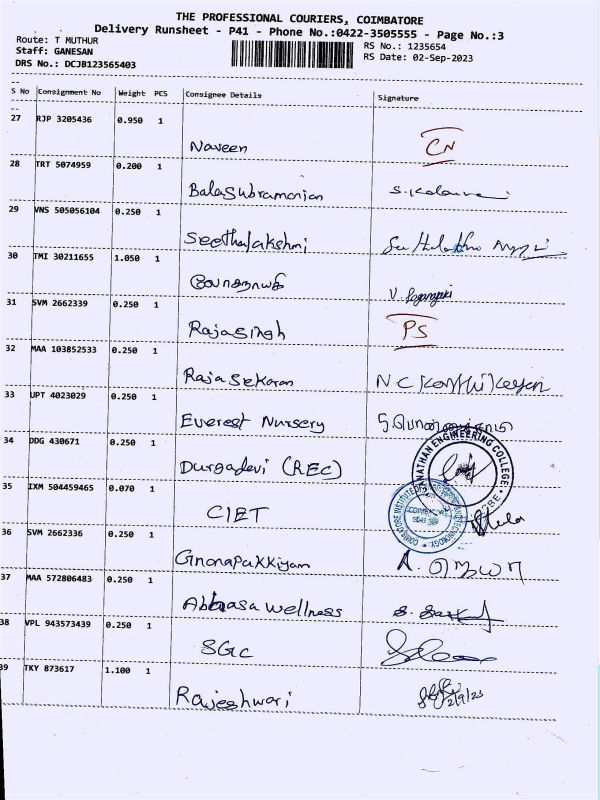 THE PROFESSIONAL COURIERS, COIMBATORE
Delivery Runsheet - P41 - Phone No.:0422-3505555 - Page No.:3
Route: T MUTHUR
RS No.: 1235654
Staff: GANESAN
RS Date: 02-Sep-2023
DRS No.: DCJB123565403
S No Consignment No Weight PCS Consignee Details Signature
27 RJP 3205436 0.950 1
Naveen CN
28 TRT 5074959 0.200 1
Balasubramanian
29 VNS 505056104 0.250 1
Seethalakshmi
30 TMI 30211655 1.050 1
லோகநாயகி
31 SVM 2662339 0.250 1
Rajasingh PS
32 MAA 103852533 0.250 1
Rajasekaran N C Karthikeyan
33 UPT 4023029 0.250 1
Everest Nursery
34 DDG 430671 0.250 1
Durgadevi (REC)
35 IXM 504459465 0.070 1
CIET
36 SVM 2662336 0.250 1
Gnonapakkiyam
37 MAA 572806483 0.250 1
Abbasa wellness
38 VPL 943573439 0.250 1
SGC
39 TKY 873617 1.100 1
Rajeshwari 2/9/23
ENGINEERING COLLEGE
COIMBATORE INSTITUTE OF TECHNOLOGY
COIMBATORE